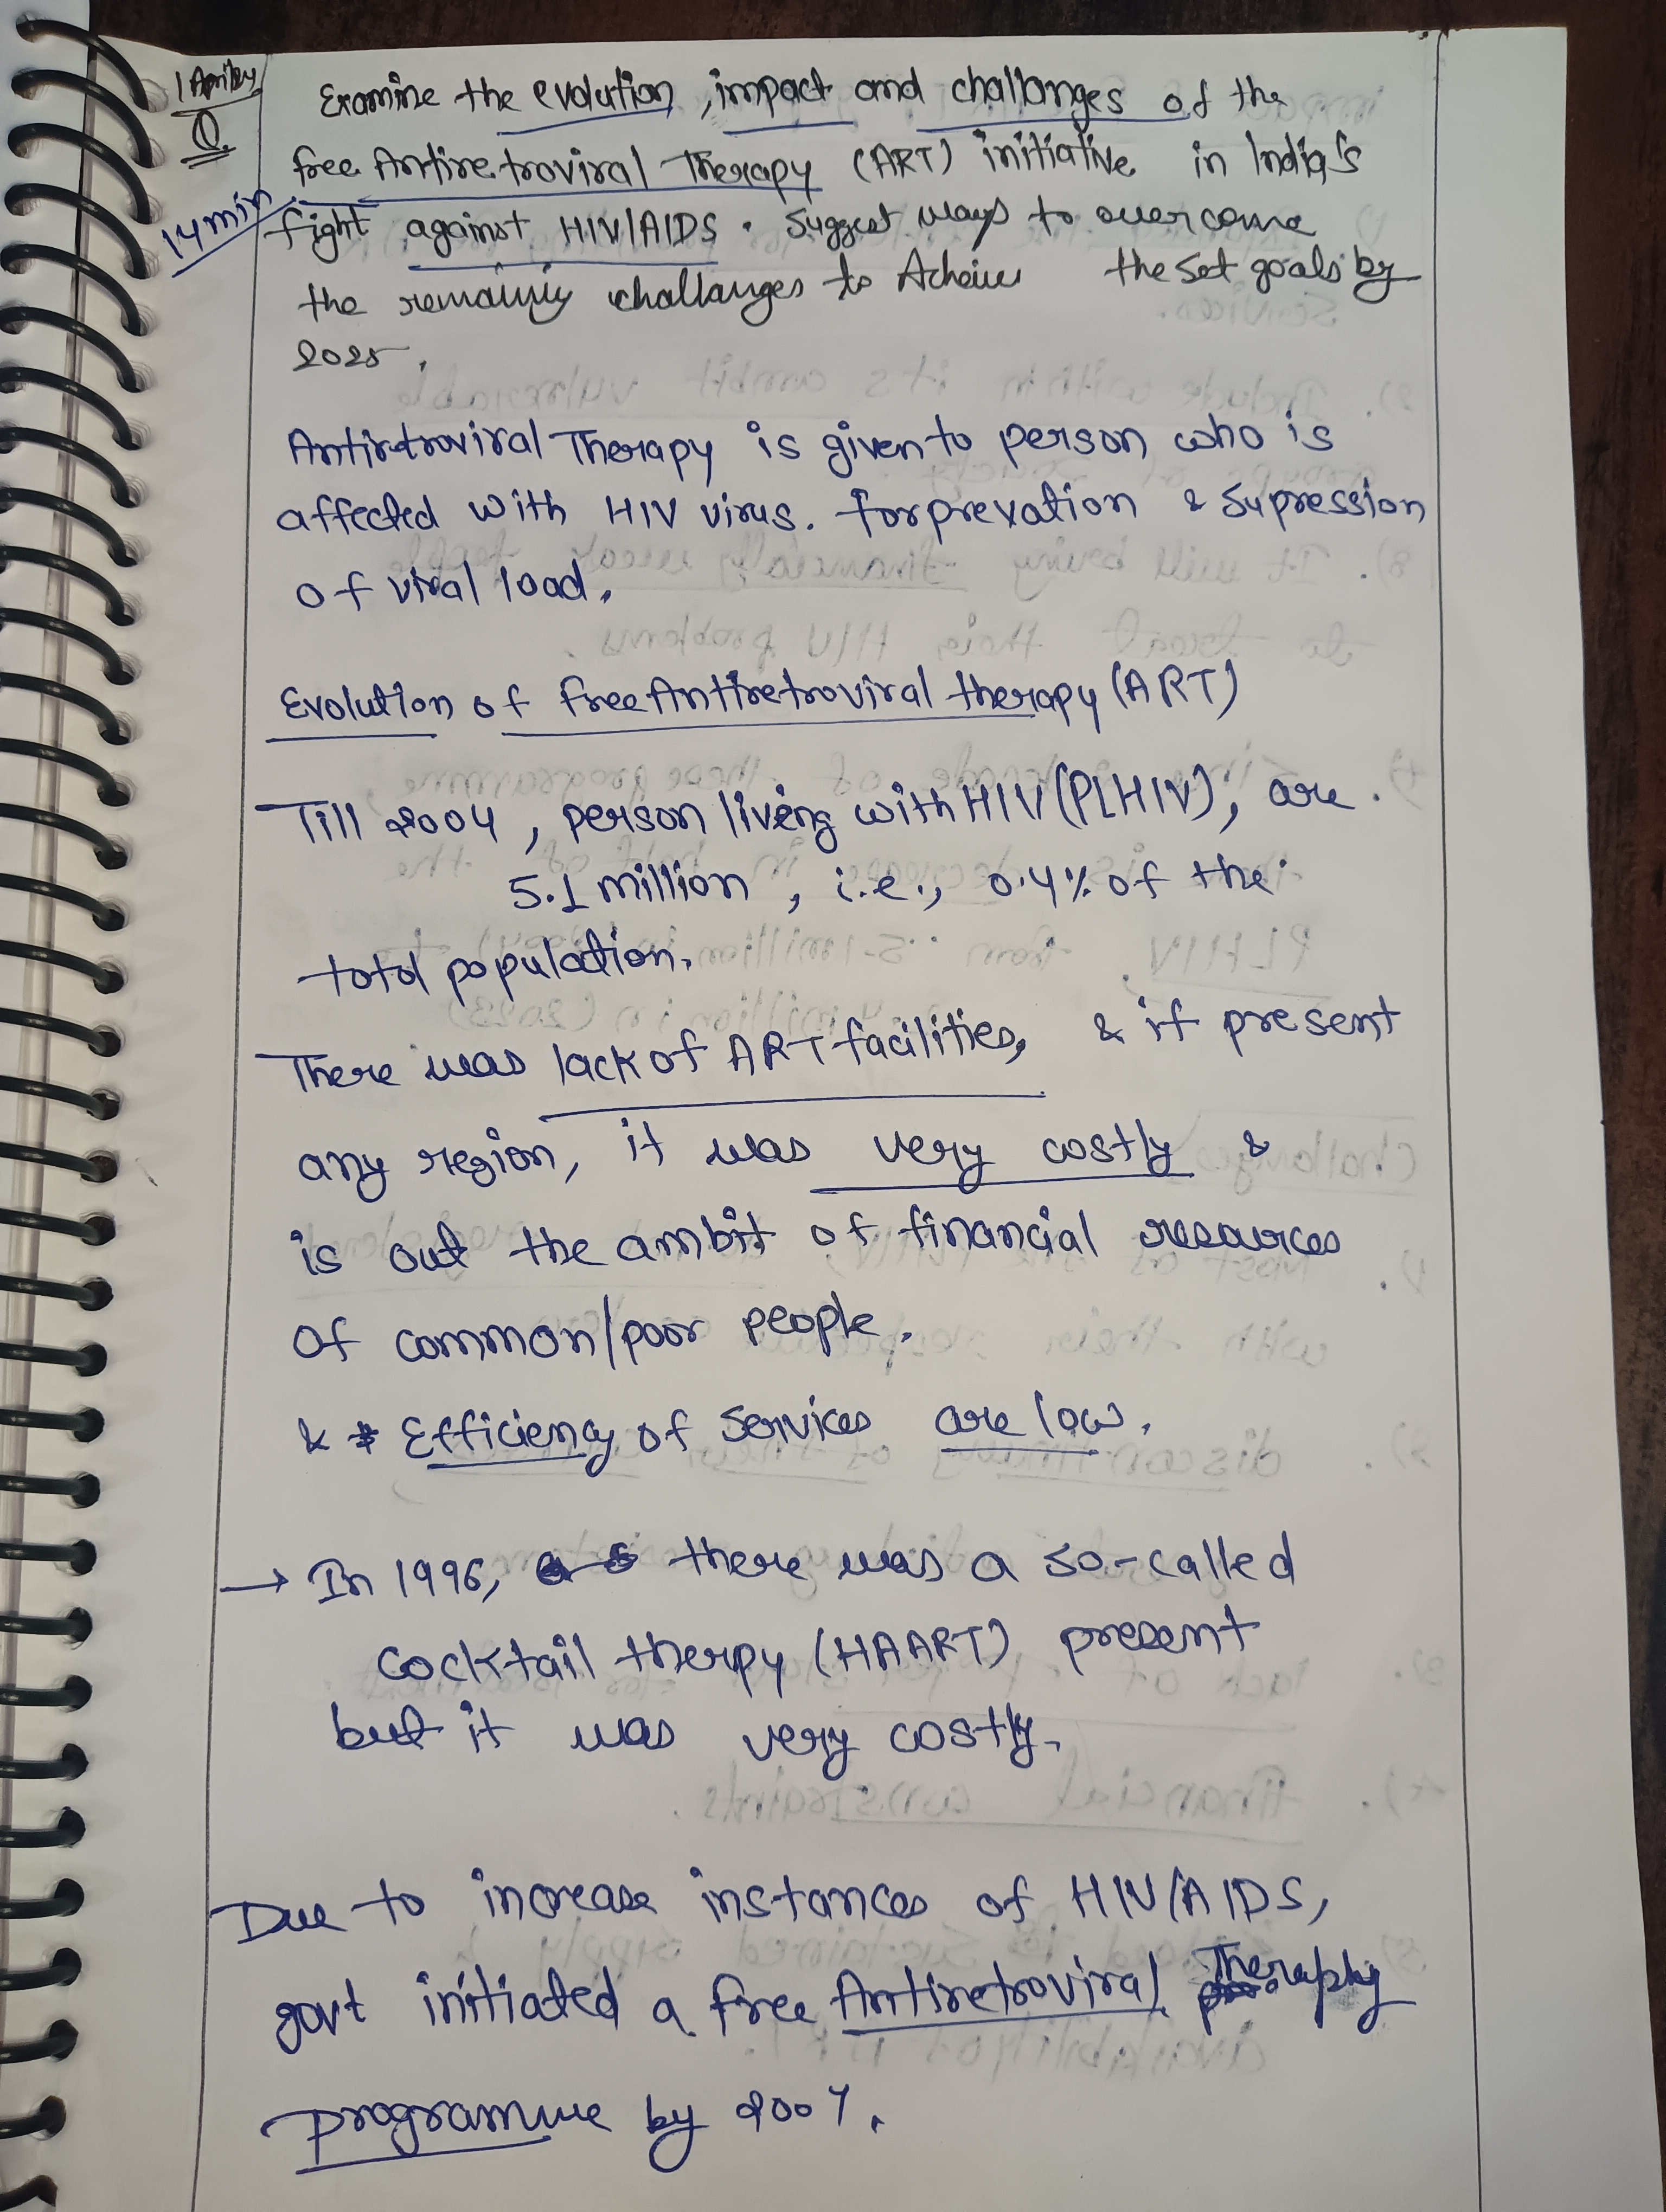 1 April
Q.
14 min
Examine the evolution, impact and challanges of the
free Antiretroviral Therapy (ART) initiative in India's
fight against HIV/AIDS. Suggest ways to overcome
the remainig challanges to Acheive the set goals by
2025.
Antiretroviral Therapy is given to person who is
affected with HIV virus. for prevation & supression
of viral load.
Evolution of free Antiretroviral therapy (ART)
Till 2004, person living with HIV (PLHIV), are
5.1 million, i.e., 0.4% of the
total population.
There was lack of ART facilities, & if present
any region, it was very costly &
is out the ambit of financial resources
of common/poor people.
& Efficiency of services are low.
→ In 1996, there was a so-called
cocktail therpy (HAART) present
but it was very costly.
Due to increase instances of HIV/AIDS,
govt initiated a free Antiretroviral Theraphy
programme by 2004.